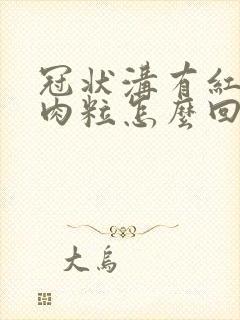 冠狀溝有紅
肉粒怎麼回
大烏